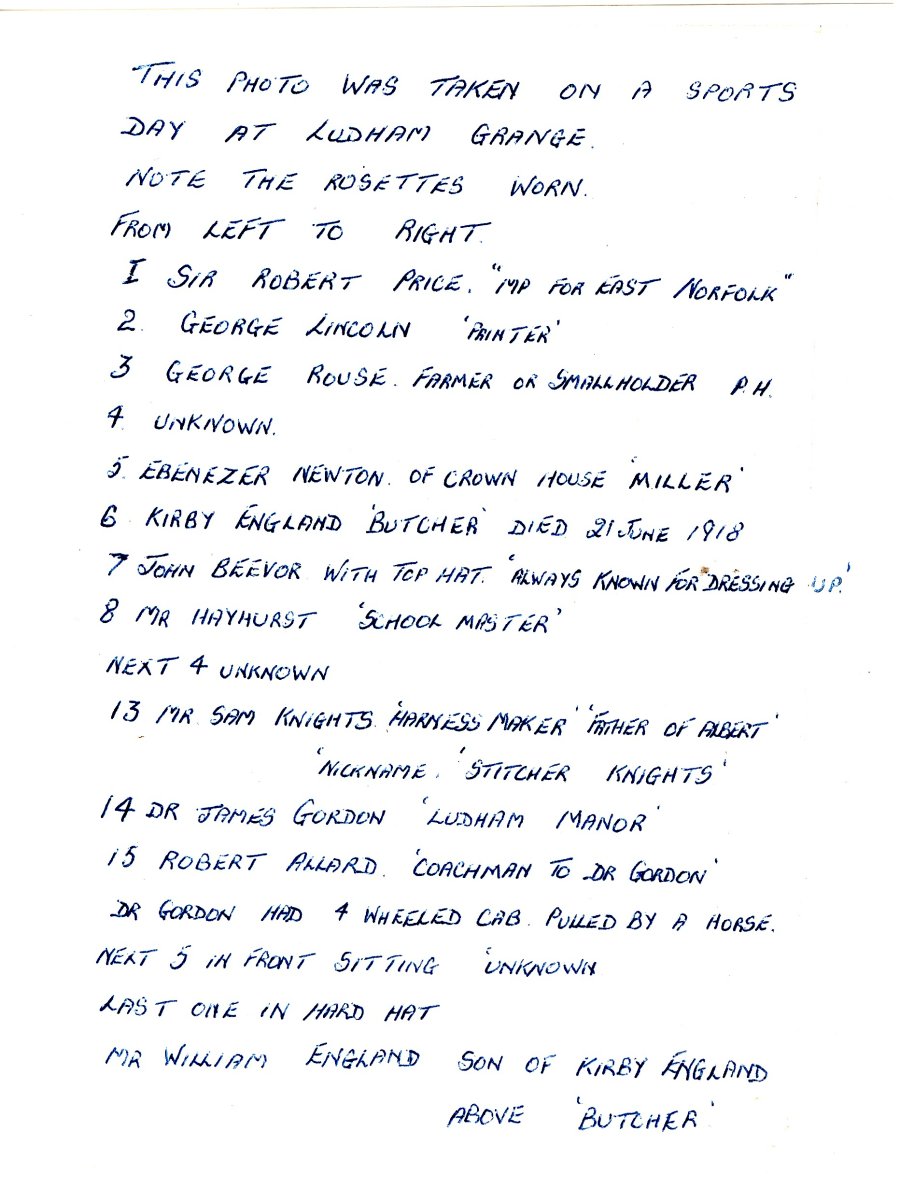 THIS PHOTO WAS TAKEN ON A SPORTS
DAY AT LUDHAM GRANGE.
NOTE THE ROSETTES WORN.
FROM LEFT TO RIGHT.
I SIR ROBERT PRICE. "MP FOR EAST NORFOLK"
2. GEORGE LINCOLN 'PRINTER'
3 GEORGE ROUSE. FARMER OR SMALLHOLDER P.H.
4. UNKNOWN.
5. EBENEZER NEWTON. OF CROWN HOUSE 'MILLER'
6 KIRBY ENGLAND 'BUTCHER' DIED 21 JUNE 1918
7 JOHN BEEVOR WITH TOP HAT. 'ALWAYS KNOWN FOR "DRESSING UP.'
8 MR HAYHURST 'SCHOOL MASTER'
NEXT 4 UNKNOWN
13 MR SAM KNIGHTS 'HARNESS MAKER' 'FATHER OF ALBERT'
'NICKNAME. 'STITCHER KNIGHTS'
14 DR JAMES GORDON 'LUDHAM MANOR'
15 ROBERT ALLARD. 'COACHMAN TO DR GORDON'
DR GORDON HAD 4 WHEELED CAB. PULLED BY A HORSE.
NEXT 5 IN FRONT SITTING 'UNKNOWN
LAST ONE IN HARD HAT
MR WILLIAM ENGLAND SON OF KIRBY ENGLAND
ABOVE 'BUTCHER'